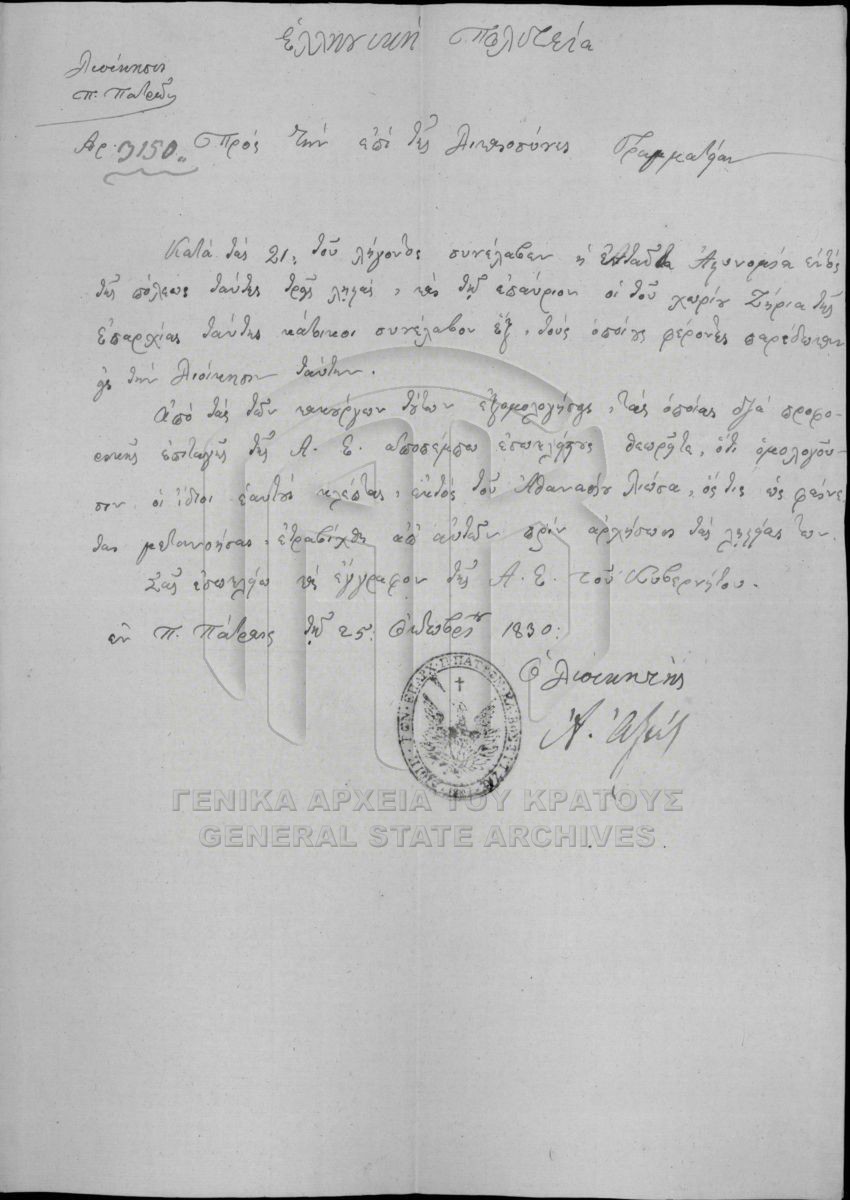 Ἑλληνικὴ Πολιτεία
Διοίκησις
Π. Πατρῶν
Αρ. 3150. Πρὸς τὴν ἐπὶ τῆς Δικαιοσύνης Γραμματείαν
Κατὰ τὰς 21. τοῦ λήγοντος συνέλαβεν ἡ ἐνταῦθα Ἀστυνομία ἐντὸς
τῆς πόλεως ταύτης τρεῖς ληστάς, καὶ τῇ ἐπαύριον οἱ τοῦ χωρίου Ζήρια τῆς
ἐπαρχίας ταύτης κάτοικοι συνέλαβον ἕξ, τοὺς ὁποίους φέροντες παρέδωκαν
εἰς τὴν Διοίκησιν ταύτην.
Ἀπὸ τὰς τῶν κακούργων τούτων ἐξομολογήσεις, τὰς ὁποίας διὰ προφο-
ρικῆς ἐπιταγῆς τῆς Α. Ε. ἀποπέμπω ἐσωκλείστως θεωρεῖτε, ὅτι ὁμολογοῦ-
σιν οἱ ἴδιοι ἑαυτοὺς κλέπτας, ἐκτὸς τοῦ Ἀθανασίου, ὅς τις ὡς φαίνε
ται μετανοήσας, ἐτραβίχθη ἀπ' αὐτῶν πρὶν ἀρχήσωσι τὰς ληστείας των.
Σᾶς ἐσωκλείω καὶ ἔγγραφον τῆς Α. Ε. τοῦ Κυβερνήτου.
ἐν Π. Πάτραις τῇ 25. Ὀκτωβρίου 1830:
Ὁ Διοικητὴς
Α. Ἀξιώτ
ΓΕΝΙΚΑ ΑΡΧΕΙΑ ΤΟΥ ΚΡΑΤΟΥΣ
GENERAL STATE ARCHIVES